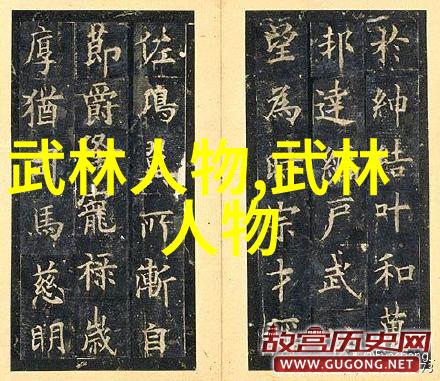 於紳結叶和黄
邦達戶武
望為宗才
佐所漸自
節爵寵祿歲
厚猶馬慈明
武林人物,武林
人物
故宫历史网
WWW.GUGONG.NET